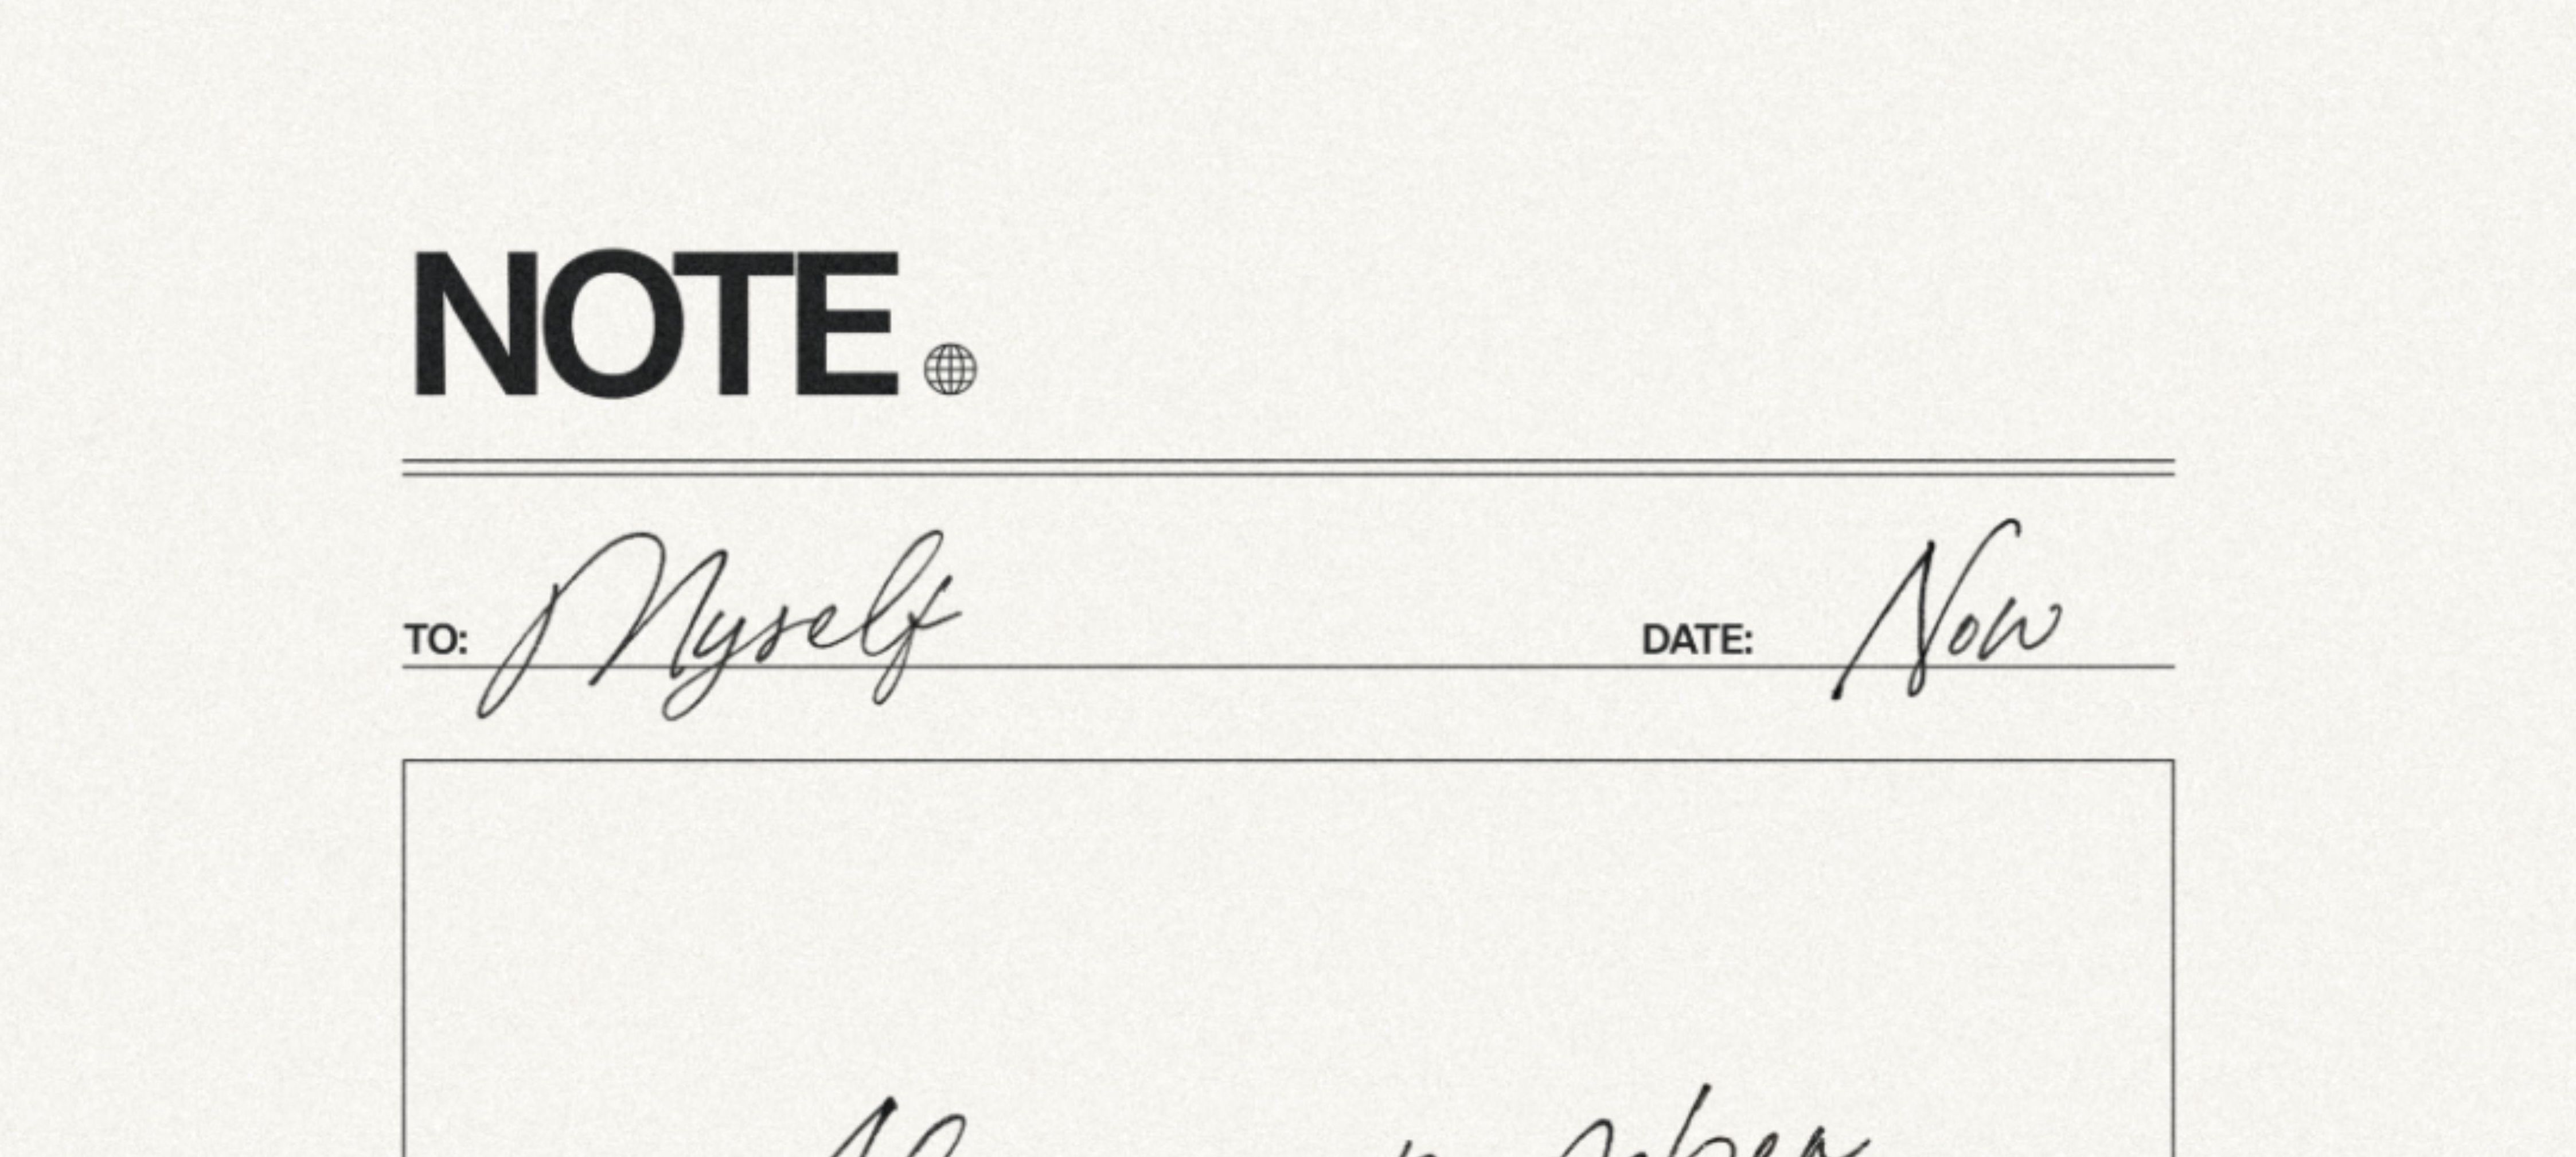 NOTE.
TO: Myself DATE: Now